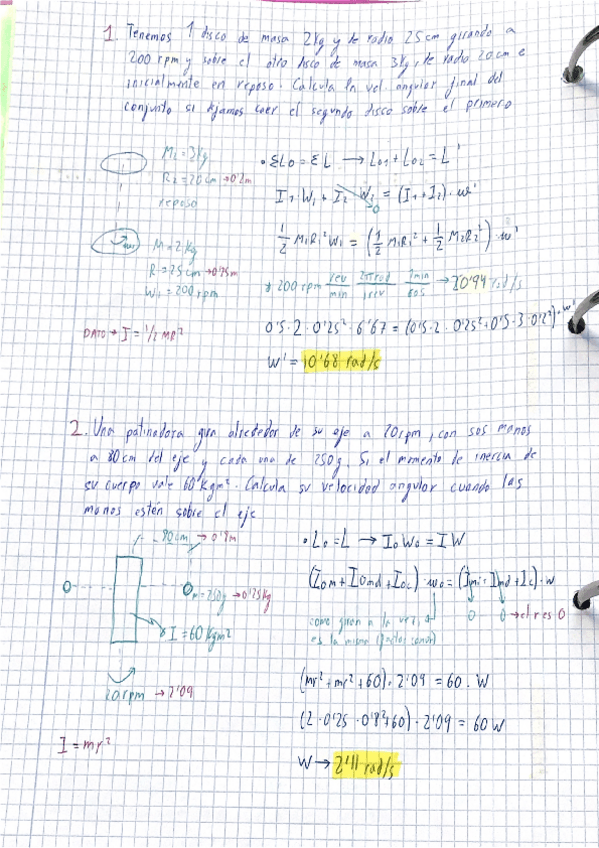 1. Tenemos 1 disco de masa 2kg y de radio 25 cm girando a
200 rpm y sobre el otro disco de masa 3kg, de radio 20 cm e
inicialmente en reposo. Calcula la vel. angular final del
conjunto si dejamos caer el segundo disco sobre el primero
M2=3kg
R2=20cm→0'2m
reposo
M=2kg
R=25cm→0'25m
W1=200rpm
DATO→I=1/2 MR²
• ΣL0=ΣL → L01+L02=L'
I1·W1+I2 W2=(I1+I2)·w'
0
1/2 M1R1²W1=(1/2 M1R1²+1/2 M2R2²)·w'
200 rpm rev/min 2πrad/1rev 1min/60s → 20'94 rad/s
0'5·2·0'25²·6'67=(0'5·2·0'25²+0'5·3·0'2²)·w'
W'=10'68 rad/s
2. Una patinadora gira alrededor de su eje a 20rpm, con sus manos
a 80cm del eje y cada una de 250g. Si el momento de inercia de
su cuerpo vale 60kgm². Calcula su velocidad angular cuando las
manos estén sobre el eje
80cm→0'8m
m=250g→0'25kg
I=60kgm²
20rpm→2'09
I=mr²
• L0=L → I0W0=IW
(I0m+I0md+I0c)·w0=(Imi+Imd+Ic)·w
0 0→el r es 0
como giran a la vez,
es la misma
(mr²+mr²+60)·2'09=60·W
(2·0'25·0'8²+60)·2'09=60W
W→2'11 rad/s